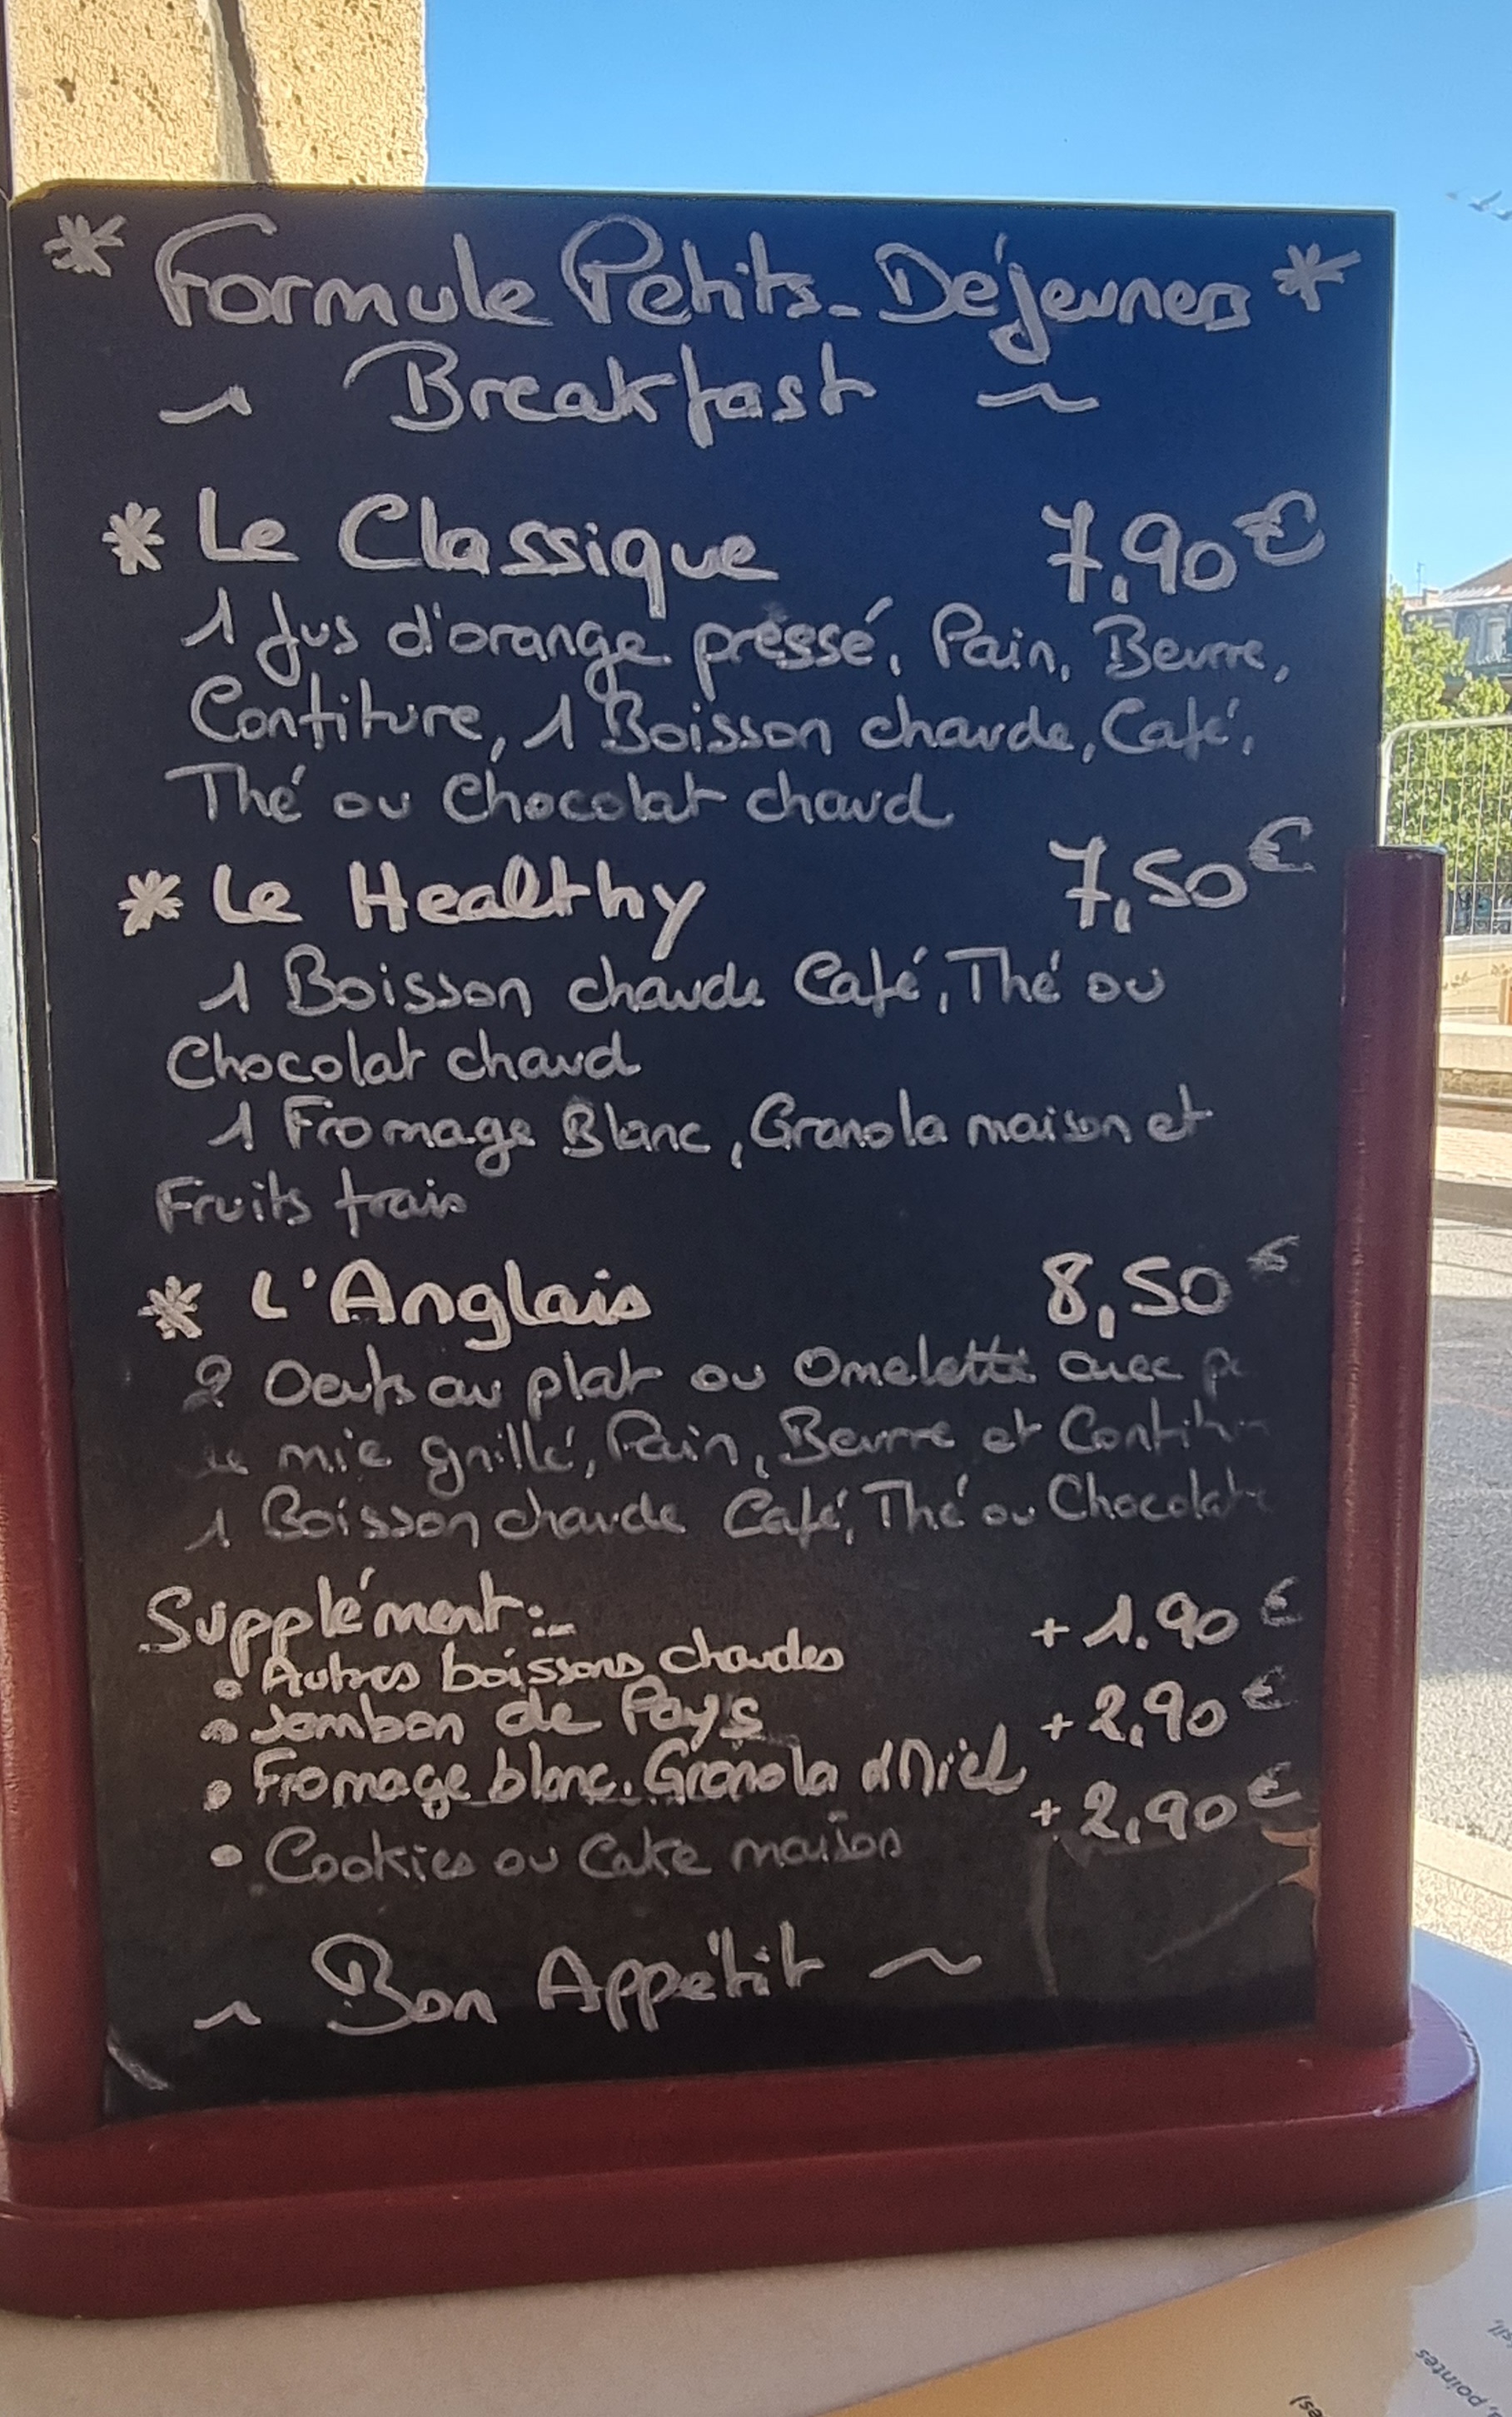 * Formule Petits-Déjeuners *
~ Breakfast ~
* Le Classique 7,90€
1 Jus d'orange pressé, Pain, Beurre,
Confiture, 1 Boisson chaude, Café,
Thé ou Chocolat chaud
* Le Healthy 7,50€
1 Boisson chaude Café, Thé ou
Chocolat chaud
1 Fromage Blanc, Granola maison et
Fruits frais
* L'Anglais 8,50€
2 Oeufs au plat ou Omelette avec
mie grillé, Pain, Beurre et
1 Boisson chaude Café, Thé ou Chocolat
Supplément:- +1.90€
• Autres boissons chaudes
• Jambon de Pays +2,90€
• Fromage blanc. Granola & Miel
+2,90€
• Cookies ou Cake maison
~ Bon Appétit ~
pointes